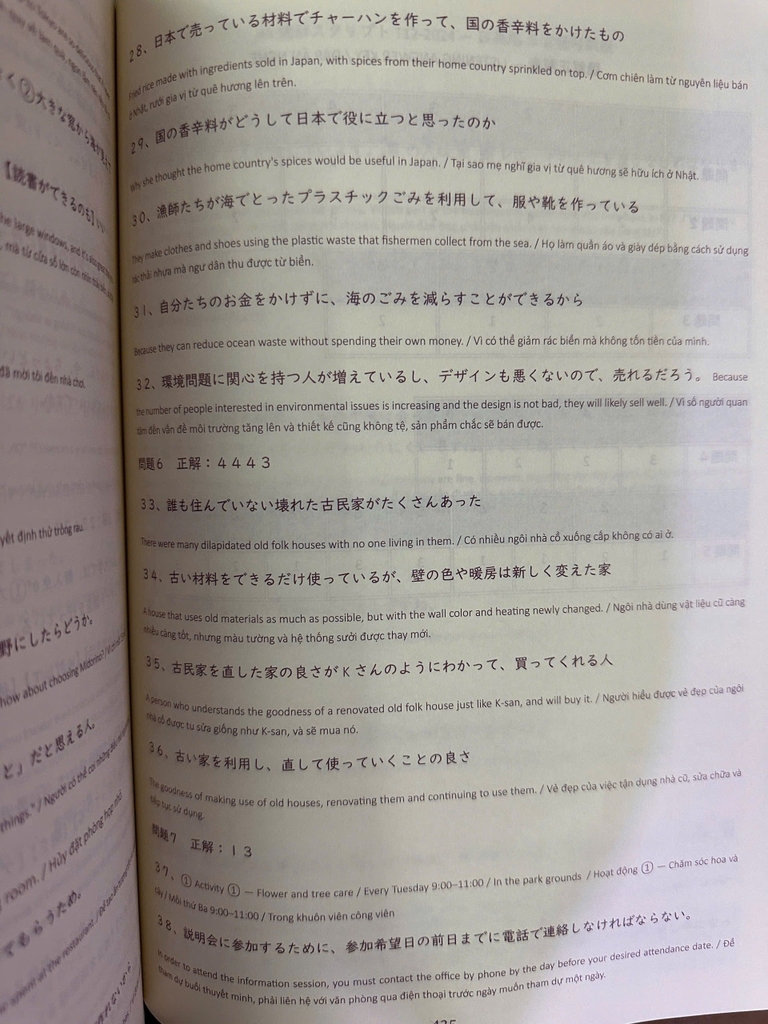 28、日本で売っている材料でチャーハンを作って、国の香辛料をかけたもの
Fried rice made with ingredients sold in Japan, with spices from their home country sprinkled on top. / Cơm chiên làm từ nguyên liệu bán
ở Nhật, rưới gia vị từ quê hương lên trên.
29、国の香辛料がどうして日本で役に立つと思ったのか
Why she thought the home country's spices would be useful in Japan. / Tại sao mẹ nghĩ gia vị từ quê hương sẽ hữu ích ở Nhật.
30、漁師たちが海でとったプラスチックごみを利用して、服や靴を作っている
They make clothes and shoes using the plastic waste that fishermen collect from the sea. / Họ làm quần áo và giày dép bằng cách sử dụng
rác thải nhựa mà ngư dân thu được từ biển.
31、自分たちのお金をかけずに、海のごみを減らすことができるから
Because they can reduce ocean waste without spending their own money. / Vì có thể giảm rác biển mà không tốn tiền của mình.
32、環境問題に関心を持つ人が増えているし、デザインも悪くないので、売れるだろう。 Because
the number of people interested in environmental issues is increasing and the design is not bad, they will likely sell well. / Vì số người quan
tâm đến vấn đề môi trường tăng lên và thiết kế cũng không tệ, sản phẩm chắc sẽ bán được.
問題6 正解：４４４３
33、誰も住んでいない壊れた古民家がたくさんあった
There were many dilapidated old folk houses with no one living in them. / Có nhiều ngôi nhà cổ xuống cấp không có ai ở.
34、古い材料をできるだけ使っているが、壁の色や暖房は新しく変えた家
A house that uses old materials as much as possible, but with the wall color and heating newly changed. / Ngôi nhà dùng vật liệu cũ càng
nhiều càng tốt, nhưng màu tường và hệ thống sưởi được thay mới.
35、古民家を直した家の良さがKさんのようにわかって、買ってくれる人
A person who understands the goodness of a renovated old folk house just like K-san, and will buy it. / Người hiểu được vẻ đẹp của ngôi
nhà cổ được tu sửa giống như K-san, và sẽ mua nó.
36、古い家を利用し、直して使っていくことの良さ
The goodness of making use of old houses, renovating them and continuing to use them. / Vẻ đẹp của việc tận dụng nhà cũ, sửa chữa và
tiếp tục sử dụng.
問題7 正解：１３
37、① Activity ① — Flower and tree care / Every Tuesday 9:00–11:00 / In the park grounds / Hoạt động ① — Chăm sóc hoa và
cây / Mỗi thứ Ba 9:00–11:00 / Trong khuôn viên công viên
38、説明会に参加するために、参加希望日の前日までに電話で連絡しなければならない。
In order to attend the information session, you must contact the office by phone by the day before your desired attendance date. / Để
tham dự buổi thuyết minh, phải liên hệ với văn phòng qua điện thoại trước ngày muốn tham dự một ngày.